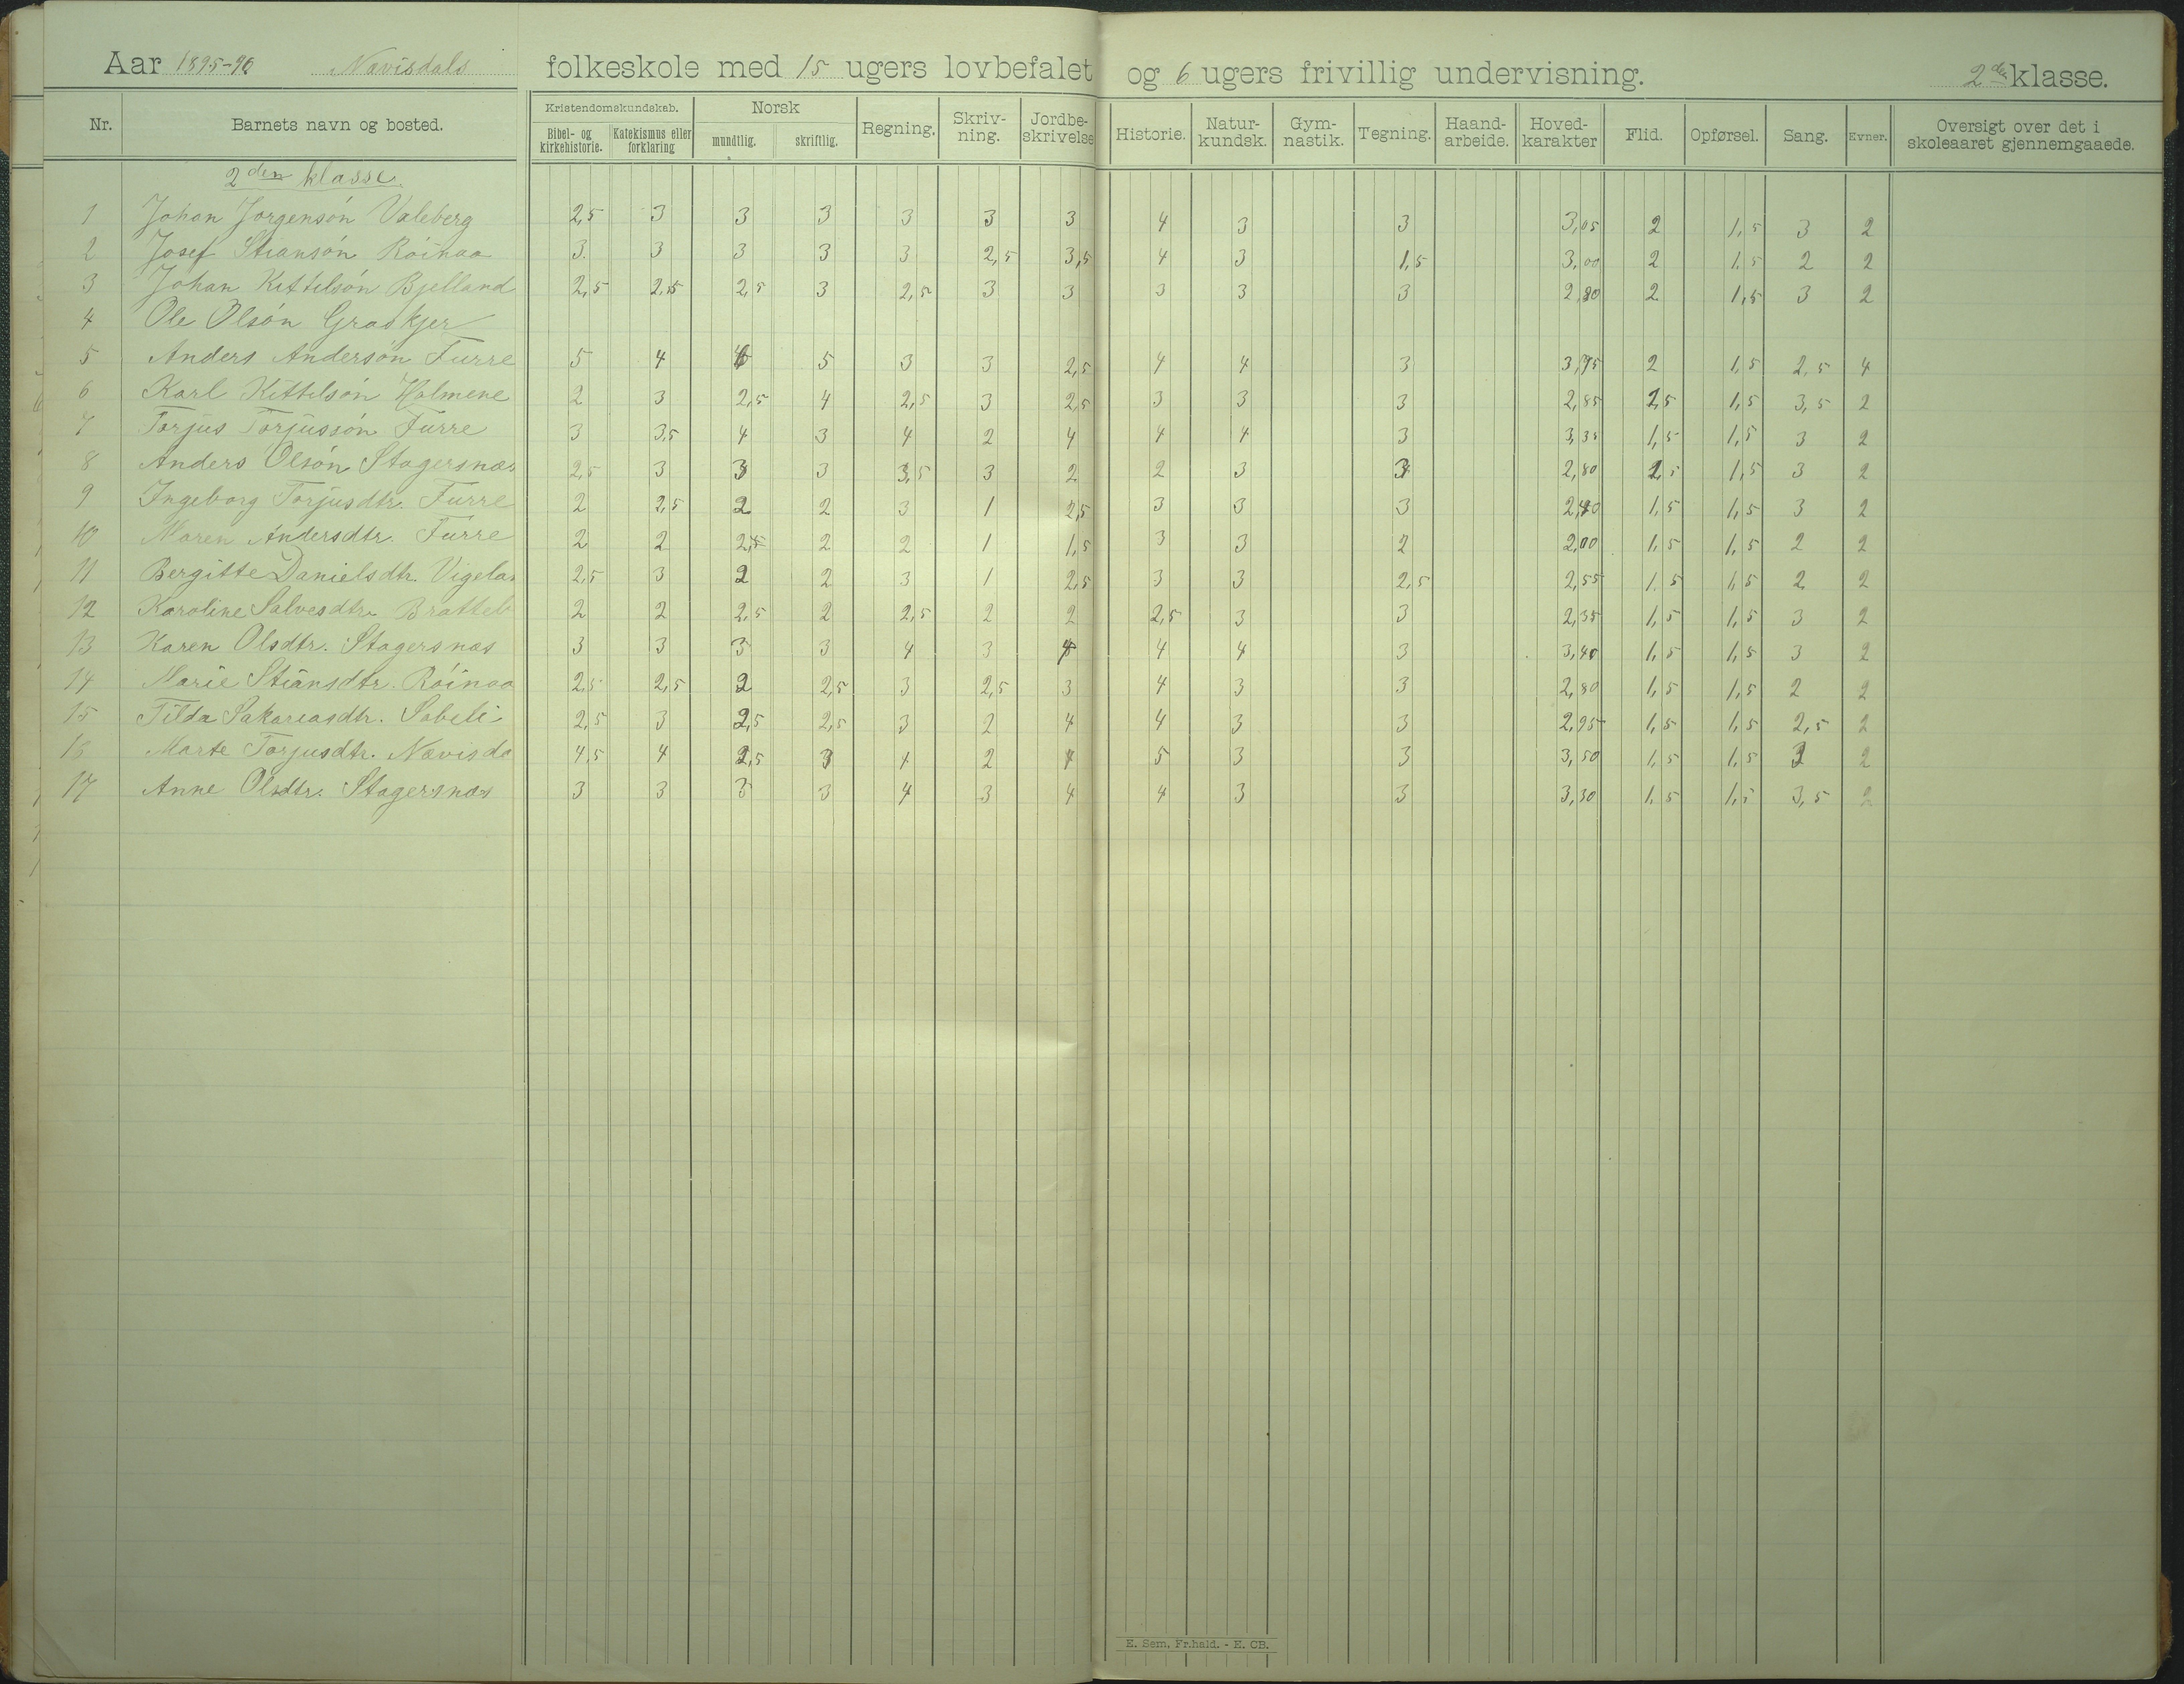 Aar 1895-96 Navisdals folkeskole med 15 ugers lovbefalet og 6 ugers frivillig undervisning. 2den klasse.
Nr. Barnets navn og bosted. Kristendomskundskab. Bibel- og kirkehistorie. Katekismus eller forklaring Norsk mundtlig. skriftlig. Regning. Skriv-ning. Jordbe-skrivelse Historie. Natur-kundsk. Gym-nastik. Tegning. Haand-arbeide. Hoved-karakter Flid. Opførsel. Sang. Evner. Oversigt over det i skoleaaret gjennemgaaede.
2den klasse.
1 Johan Jørgensøn Valeberg 2,5 3 3 3 3 3 3 4 3 3 3,05 2 1,5 3 2
2 Josef Stiansøn Røinaa 3 3 3 3 3 2,5 3,5 4 3 1,5 3,00 2 1,5 2 2
3 Johan Kittilsøn Bjelland 2,5 2,5 2,5 3 2,5 3 3 3 3 3 2,80 2 1,5 3 2
4 Ole Olsøn Graskjer
5 Anders Andersøn Furre 5 4 5 3 3 2,5 4 4 3 3,75 2 1,5 2,5 4
6 Karl Kittilsøn Holmene 2 3 2,5 4 2,5 3 2,5 3 3 3 2,85 1,5 3,5 2
7 Torjus Torjussøn Furre 3 3,5 4 3 4 2 4 4 4 3 3,35 1,5 1,5 3 2
8 Anders Olsøn Stagersnæs 2,5 3 3 3 3,5 3 2 2 3 3 2,80 1,5 3 2
9 Ingeborg Torjusdtr. Furre 2 2,5 2 2 3 1 2,5 3 3 3 2,40 1,5 1,5 3 2
10 Maren Andersdtr. Furre 2 2 2,5 2 2 1 1,5 3 3 2 2,00 1,5 1,5 2 2
11 Bergitte Danielsdtr. Vigelan 2,5 3 2 2 3 1 2,5 3 3 2,5 2,55 1,5 1,5 2 2
12 Karoline Salvesdtr. Bratteb 2 2 2,5 2 2,5 2 2 2,5 3 3 2,35 1,5 1,5 3 2
13 Karen Olsdtr. Stagersnæs 3 3 3 3 4 3 4 4 4 3 3,40 1,5 1,5 3 2
14 Marie Stiansdtr. Røinaa 2,5 2,5 2 2,5 3 2,5 3 4 3 3 2,80 1,5 1,5 2 2
15 Tilda Sakariasdtr. Sabeli 2,5 3 2,5 2,5 3 2 4 4 3 3 2,95 1,5 1,5 2,5 2
16 Marte Torjusdtr. Navisda 4,5 4 2,5 3 4 2 4 5 3 3 3,50 1,5 1,5 2
17 Anne Olsdtr. Stagersnæs 3 3 3 3 4 3 4 4 3 3 3,30 1,5 1,5 3,5 2
E. Sem, Fr.hald. - E. CB.